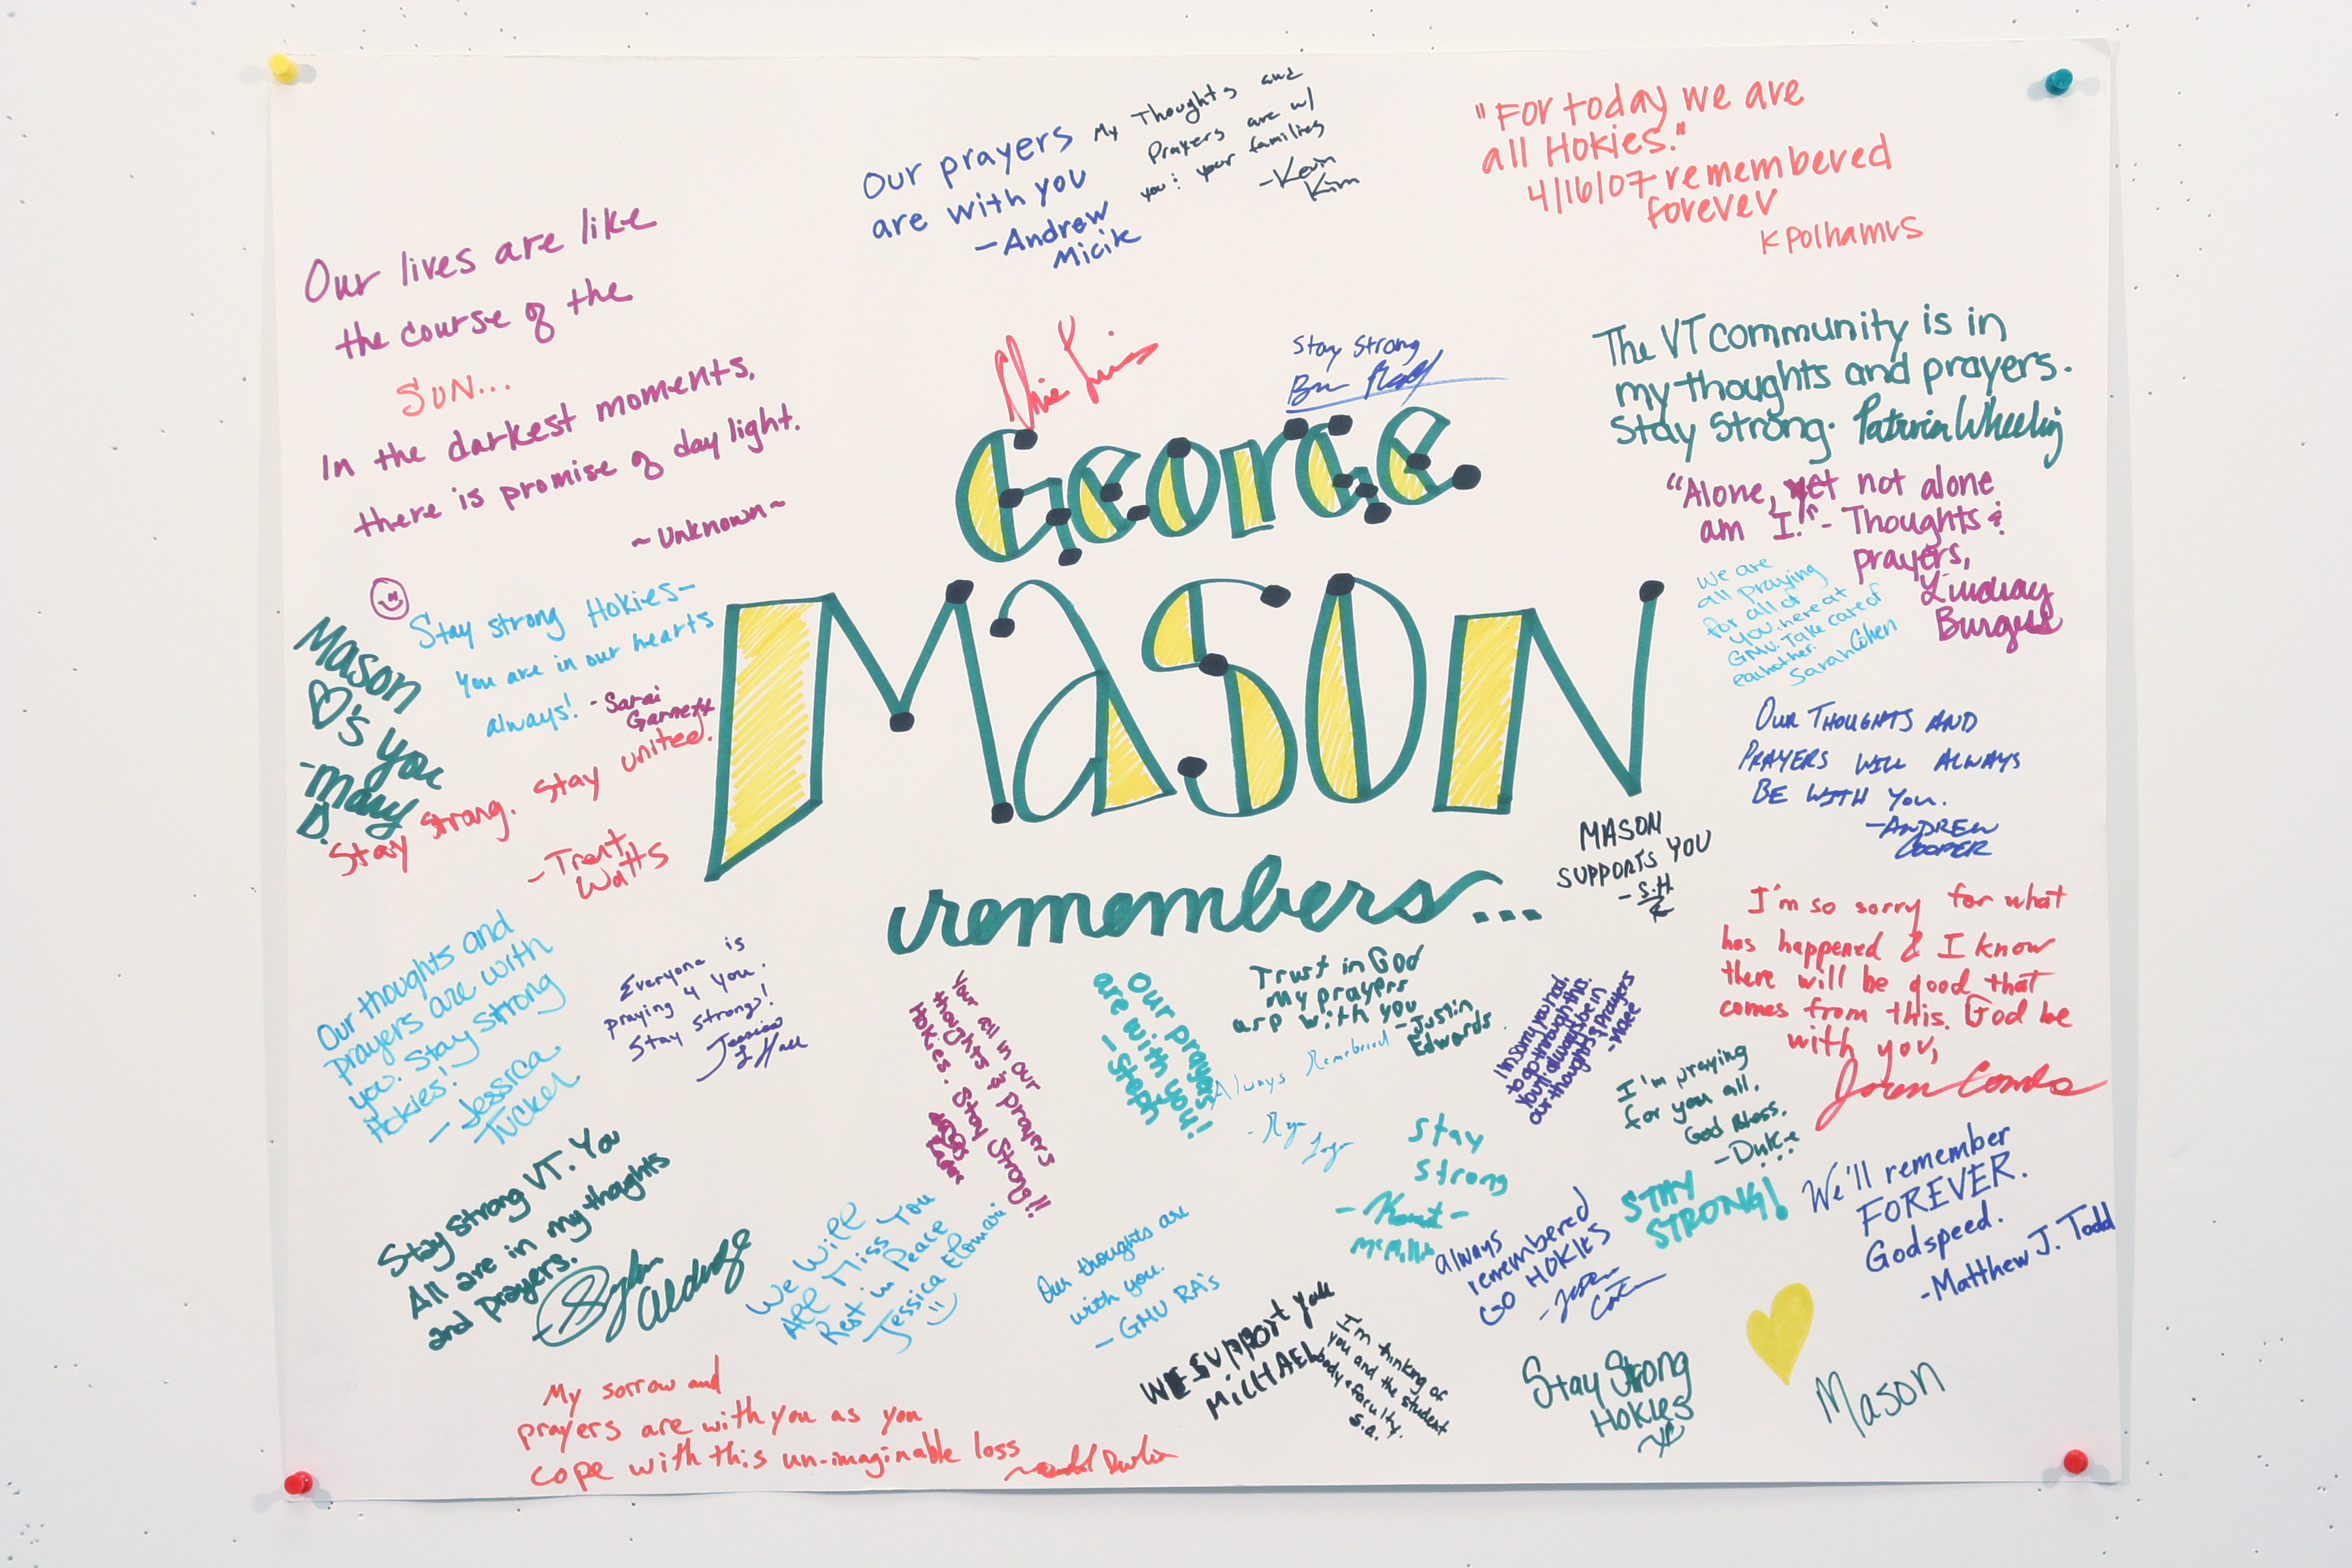 Our prayers
are with you
-Andrew
Micik
My Thoughts and
Prayers are w/
you & your families
-Kevin
Kim
"For today we are
all Hokies."
4/16/07 remembered
forever
K Polhamus
Our lives are like
the course of the
SUN...
In the darkest moments,
there is promise of daylight.
~Unknown~
Stay Strong
The VT community is in
my thoughts and prayers.
Stay Strong. Patricia
"Alone, yet not alone
am I." - Thoughts &
prayers,
Lindsay
We are
all praying
for all of
you here at
GMU. Take care of
eachother.
Sarah Cohen
George
Mason
remembers...
Stay strong Hokies-
You are in our hearts
always! -Sarai
Garnett
Mason
♡'s you
-Mary
D.
Stay strong. Stay united.
-Trent
Watts
OUR THOUGHTS AND
PRAYERS WILL ALWAYS
BE WITH YOU.
-ANDREW
COOPER
MASON
SUPPORTS YOU
-S.H
I'm so sorry for what
has happened & I know
there will be good that
comes from this. God be
with you,
Our thoughts and
prayers are with
you. Stay strong
Hokies!
-Jessica
Tucker
Everyone is
praying 4 you.
Stay strong!
Jessica
L Hall
You all in our
thoughts & prayers
Hokies. Stay Strong!!
Our prayers
are with you!
-Steph
Trust in God
My prayers
are with you
-Justin
Edwards
Always Remebered
I'm sorry you had
to go through this.
You'll always be in
our thoughts & prayers
I'm praying
for you all.
God Bless.
-Duke
Stay strong VT. You
All are in my thoughts
and prayers.
We Will
All Miss You
Rest in Peace
Jessica
Our thoughts are
with you.
-GMU RA's
Stay
Strong
always
remembered
GO HOKIES
STAY
STRONG!
We'll remember
FOREVER.
Godspeed.
-Matthew J. Todd
WE SUPPORT YOU
MICHAEL
I'm thinking of
you and the student
body & faculty
S.a.
Stay Strong
HOKIES
Mason
My sorrow and
prayers are with you as you
cope with this un-imaginable loss